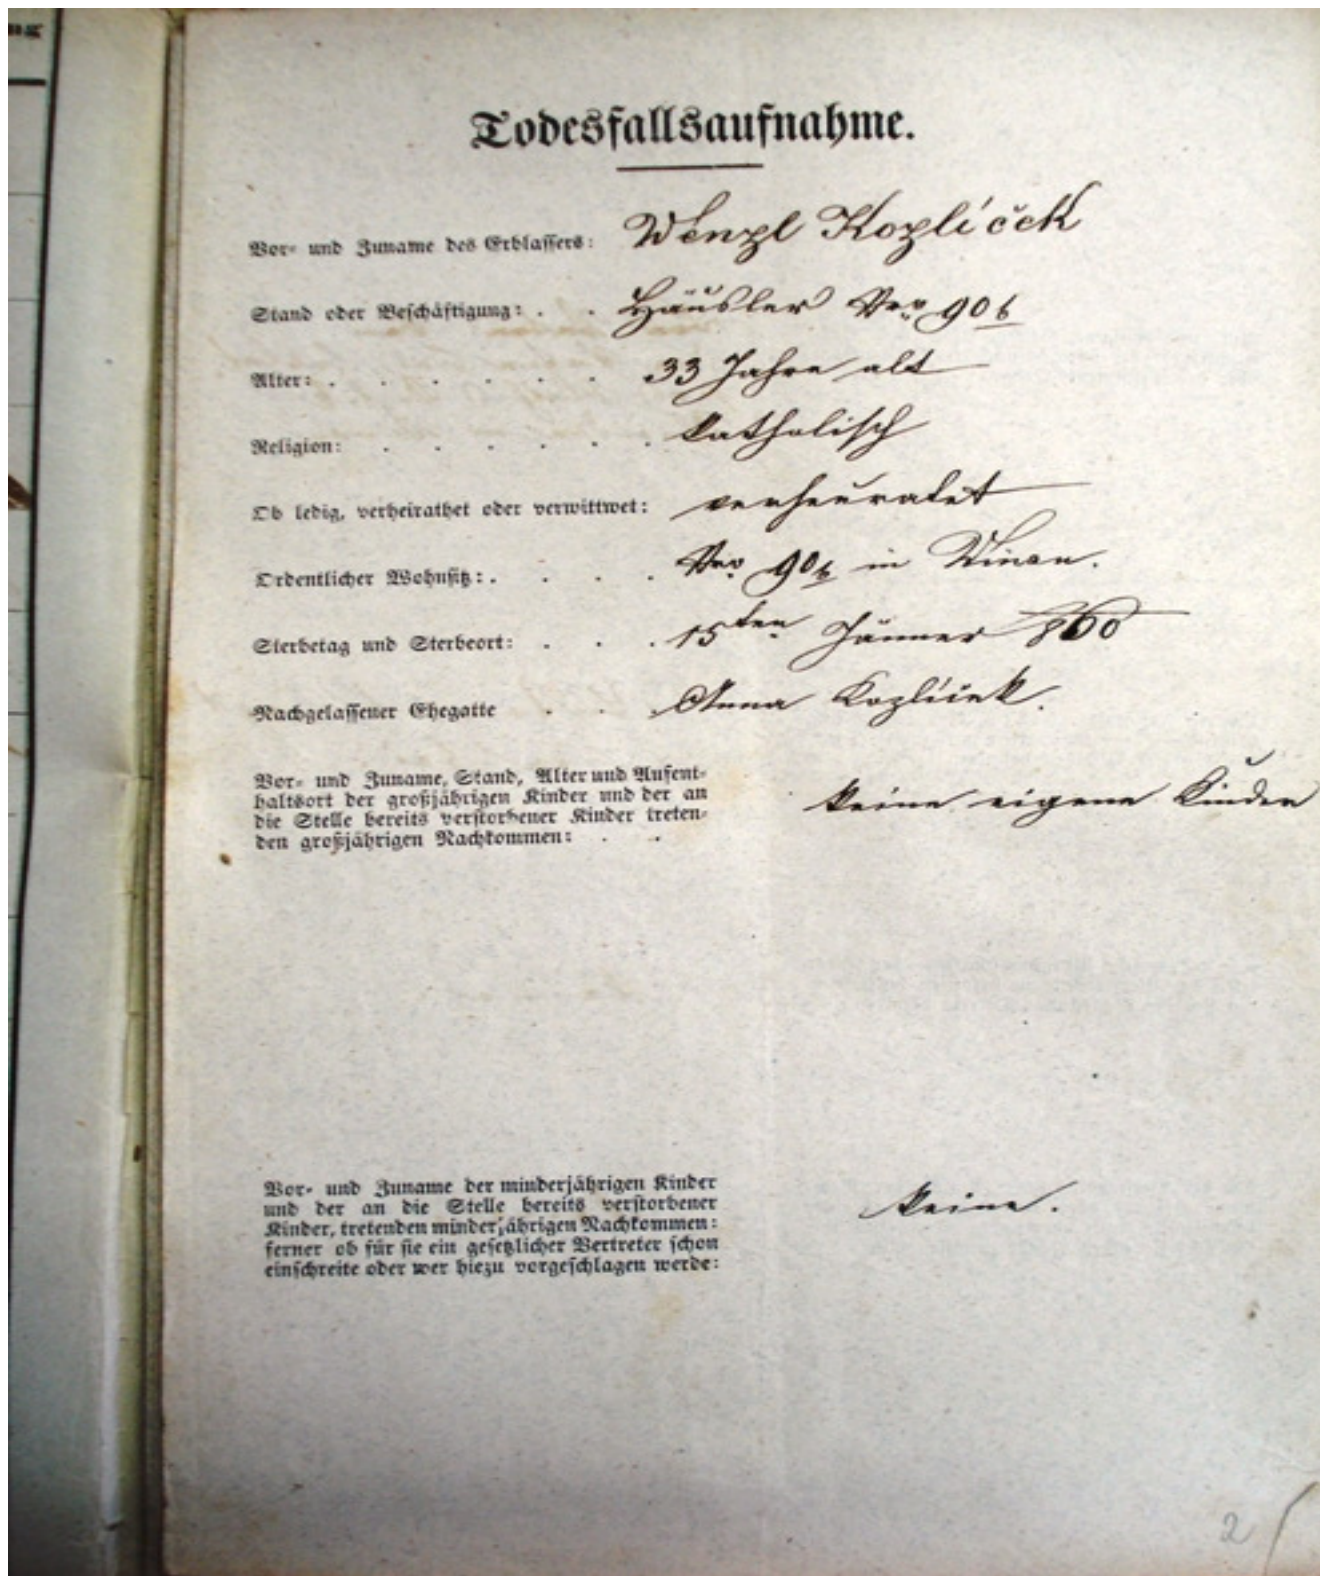 Todesfallsaufnahme.
Vor- und Zuname des Erblassers: Wenzl Kozlíček
Stand oder Beschäftigung: . . Häusler Nro 90 b
Alter: . . . . . . 33 Jahre alt
Religion: . . . . . . katholisch
Ob ledig, verheirathet oder verwittwet: verheuratet
Ordentlicher Wohnsitz: . . . . Nro 90 b in Winan.
Sterbetag und Sterbeort: . . . 15ten Jänner 860
Nachgelassener Ehegatte . . . Anna Kozlíček.
Vor- und Zuname, Stand, Alter und Aufent-
haltsort der großjährigen Kinder und der an
die Stelle bereits verstorbener Kinder treten-
den großjährigen Nachkommen: . .
keine eigene Kinder
Vor- und Zuname der minderjährigen Kinder
und der an die Stelle bereits verstorbener
Kinder, tretenden minderjährigen Nachkommen:
ferner ob für sie ein gesetzlicher Vertreter schon
einschreite oder wer hiezu vorgeschlagen werde:
keine.
2